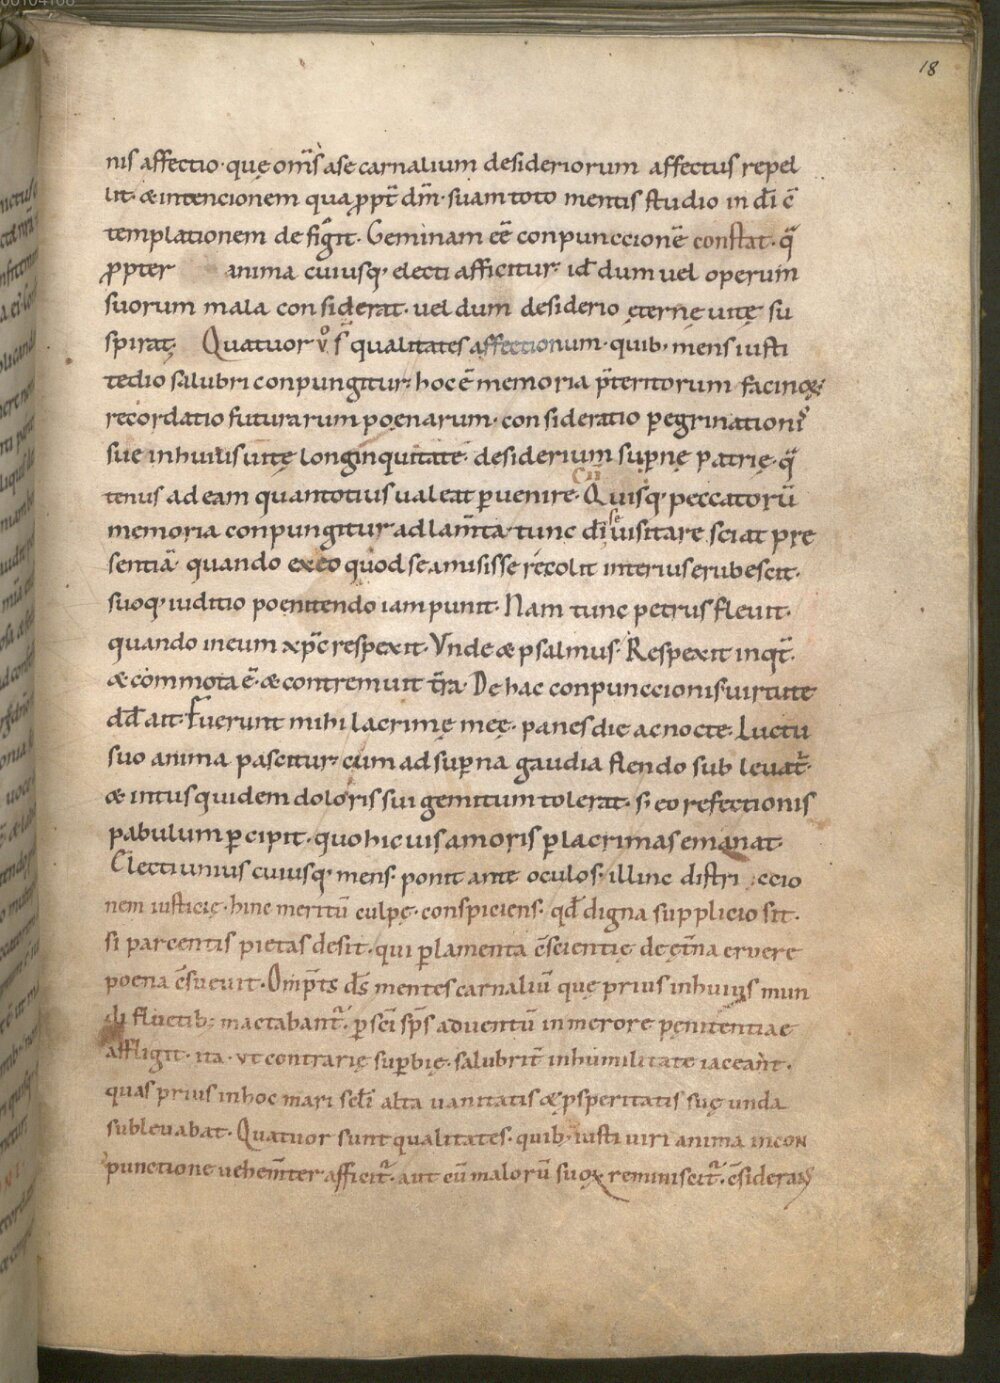 18
nis affectio· quę om̄s̄ a se carnalium desideriorum affectus repel
lit· & intencionem qua ꝓpt̄ dm̄· suam toto mentis studio in dī c̄
templationem defigit· Geminam eē̄ conpunccionē constat· q̄
ꝓpter anima cuiusq· electi afficitur· id̄ dum uel operum
suorum mala considerat· uel dum desiderio ęternę uitę su
spirat· Quatuor v̊ s̄ qualitates affectionum· quib· mens iusti
tedio salubri conpungitur· hoc ē memoria p̄teritorum facinoꝝ·
recordatio futurarum poenarum· consideratio peregrinationis
sue in huius uitę longinquitate· desiderium suꝑnę patrię· q̄
tenus ad eam quantotius ualeat ꝑuenire· Cū Quisq· peccatorū
memoria conpungitur ad lam̄ta· tunc dī se uisitare sciat pre
sentiā· quando ex eo quod se amisisse recolit interius erubescit·
suoq· iuditio poenitendo iam punit· Nam tunc petrus fleuit·
quando in eum xp̄c respexit· Vnde & psalmus· Respexit inqt̄·
& commota ē· & contremuit t̄ra· De hac conpunccionis uirtute
dd̄ ait· Fuerunt mihi lacrimę meę· panes die ac nocte· Luctu
suo anima pascitur· cum ad suꝑna gaudia flendo subleuat̄·
& intus quidem doloris sui gemitum tolerat· s; eo refectionis
pabulum ꝑcipit· quo hic uis amoris ꝑ lacrimas emanat·
Electi unius cuiusq· mens· ponit ante oculos· illinc distri ccio
nem iusticię· hinc meritū culpę· conspiciens· qd̄ digna supplicio sit·
si parcentis pietas desit· qui ꝑ lamenta c̄scientię de ęt̄na ervere
poena c̄sueuit· Omp̄ts d̄s mentes carnaliū quę prius in huius mun
di fluctib; mactabant̄· ꝑ sc̄i sp̄s aduentū in merore pęnitentiae
affligit· ita· vt contrarię suꝑbię· salubrit̄ in humilitate iaceant·
quas prius in hoc mari scl̄i alta uanitatis & ꝓsperitatis suę unda
subleuabat· Quatuor sunt qualitates· quib· iusti uiri anima in con
punctione uehem̄ter afficit̄· aut cū malorū suoꝝ reminiscit̄· c̄siderans